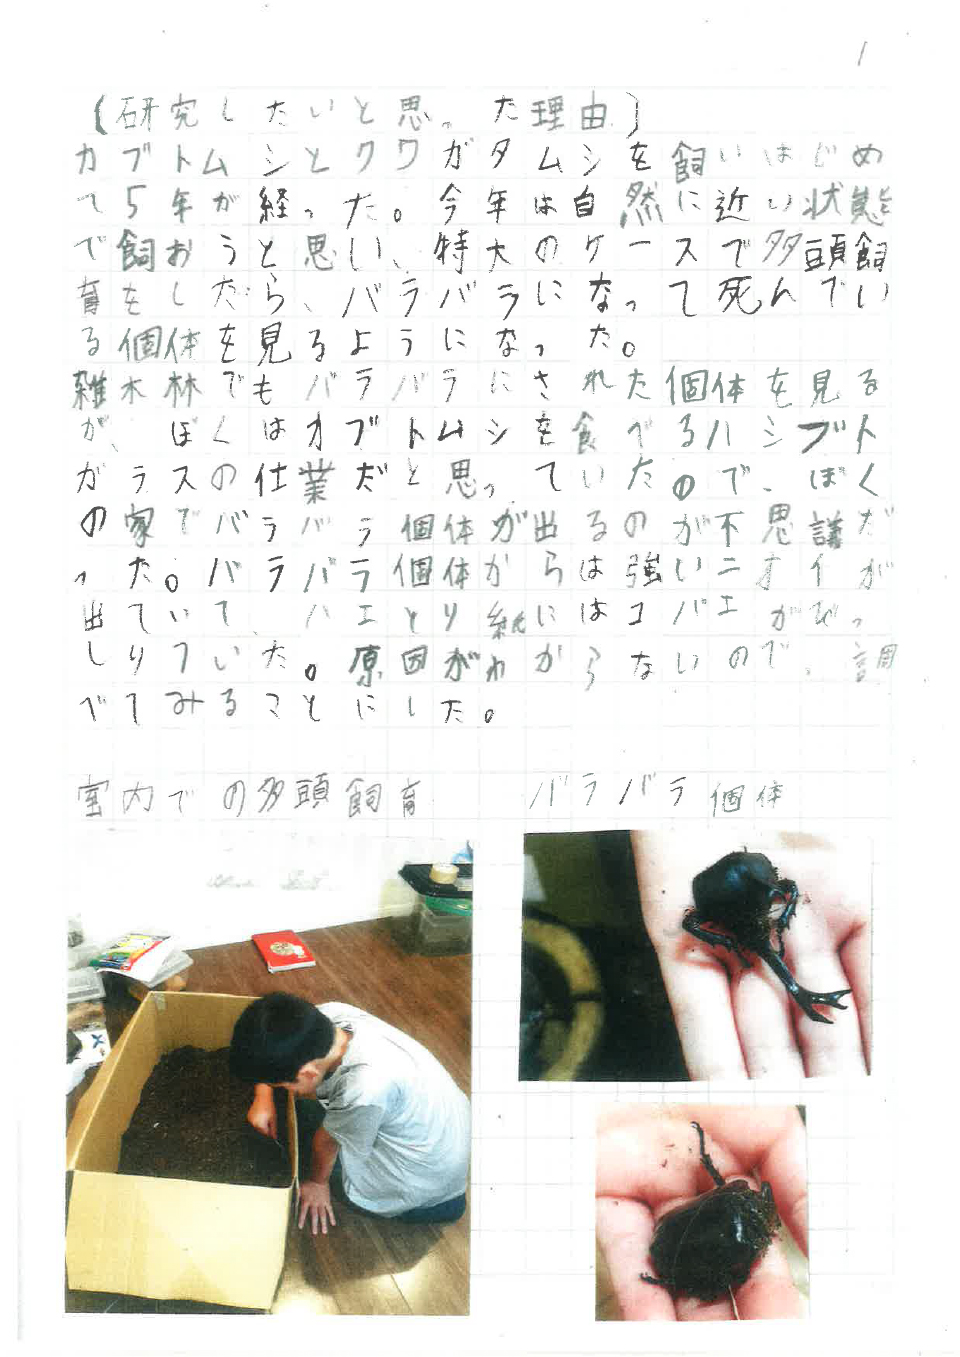 1
〔研究したいと思った理由〕
カブトムシとクワガタムシを飼いはじめ
て5年が経った。今年は自然に近い状態
で飼おうと思い、特大のケースで多頭飼
育をしたら、バラバラになって死んでい
る個体を見るようになった。
雑木林でもバラバラにされた個体を見る
が、ぼくはカブトムシを食べるハシブト
ガラスの仕業だと思っていたので、ぼく
の家でバラバラ個体が出るのが不思議だ
った。バラバラ個体からは強いニオイが
出ていて、ハエとり紙にはコバエがびっ
しりついた。原因がわからないので、調
べてみることにした。
室内での多頭飼育 バラバラ個体